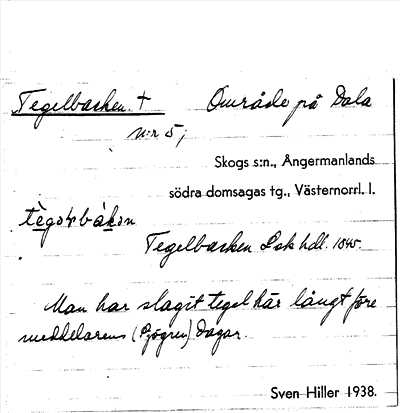 Tegelbacken. † Område på Dala
n:r 5;
Skogs s:n., Ångermanlands
södra domsagas tg., Västernorrl. l.
Tegelbacken Lsk hdl. 1845.
Man har slagit tegel här långt före
meddelarens (Sjögren) dagar.
Sven Hiller 1938.